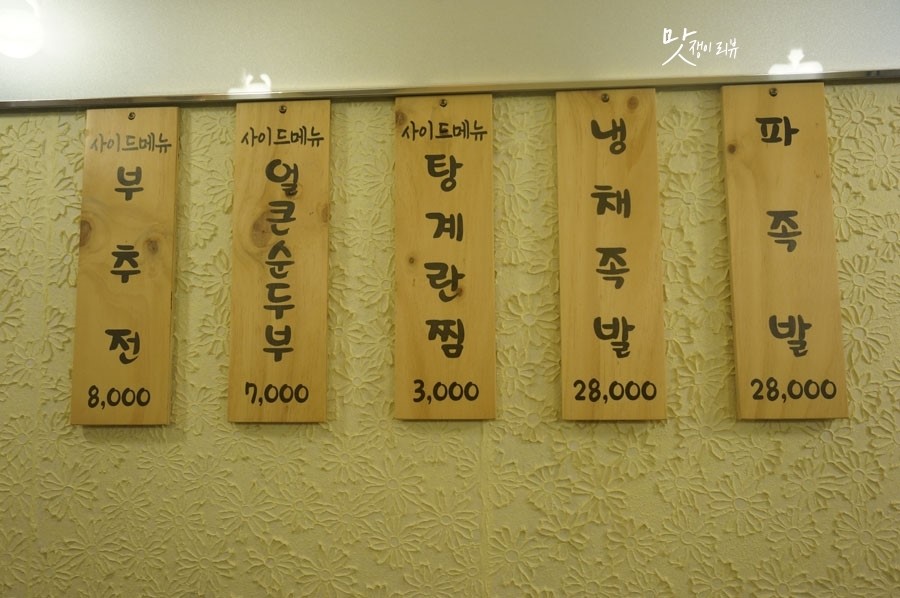 맛쟁이 리뷰
사이드메뉴
부추전
8,000
사이드메뉴
얼큰순두부
7,000
사이드메뉴
탕계란찜
3,000
냉채족발
28,000
파족발
28,000